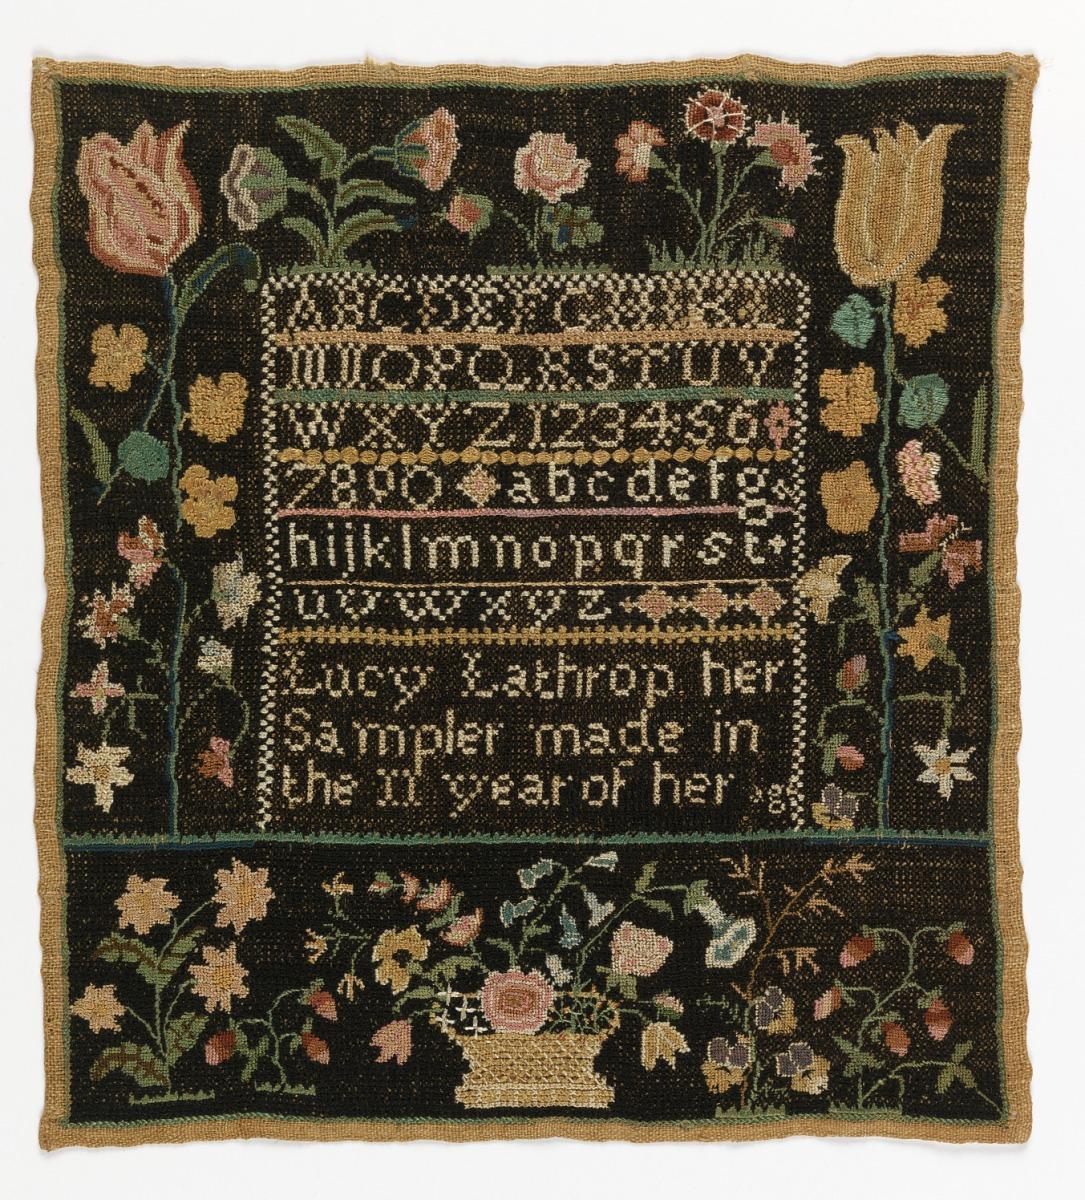 ABCDEFGHIKL
MNOPQRSTUV
WXYZ123456
7890 abcdefg
hijklmnopqrst
uvwxyz
Lucy Lathrop her
Sampler made in
the 11 year of her